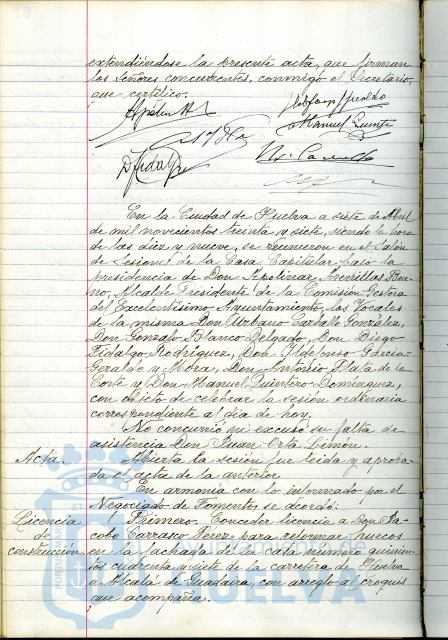 extendiéndose la presente acta, que firman
los Señores concurrentes, conmigo el Secretario,
que certifico.
Manuel Quintero
En la Ciudad de Huelva a siete de Abril
de mil novecientos treinta y siete, siendo la hora
de las diez y nueve, se reunieron en el Salón
de Sesiones de la Casa Capitular bajo la
presidencia de Don Apolinar Arenillas Bue-
no, Alcalde Presidente de la Comisión Gestora
del Excelentísimo Ayuntamiento, los Vocales
de la misma Don Urbano Carballo González,
Don Gonzalo Blanco Delgado, Don Diego
Fidalgo Rodríguez, Don Ildefonso García-
Geraldo y Mora, Don Antonio Plata de la
Corte y Don Manuel Quintero Domínguez,
con objeto de celebrar la sesión ordinaria
correspondiente al día de hoy.
No concurrió ni excusó su falta de
asistencia Don Juan Orta Limón.
Acta. Abierta la sesión fue leida y aproba-
da el acta de la anterior.
En armonía con lo informado por el
Negociado de Fomentos se acordó:
Licencia Primero: Conceder licencia a Don Ja-
de cobo Carrasco Pérez para reformar huecos
construcción en la fachada de la casa número quinien-
tos cuarenta y siete de la carretera de Huelva
a Alcalá de Guadaira, con arreglo al croquis
que acompaña.
HUELVA